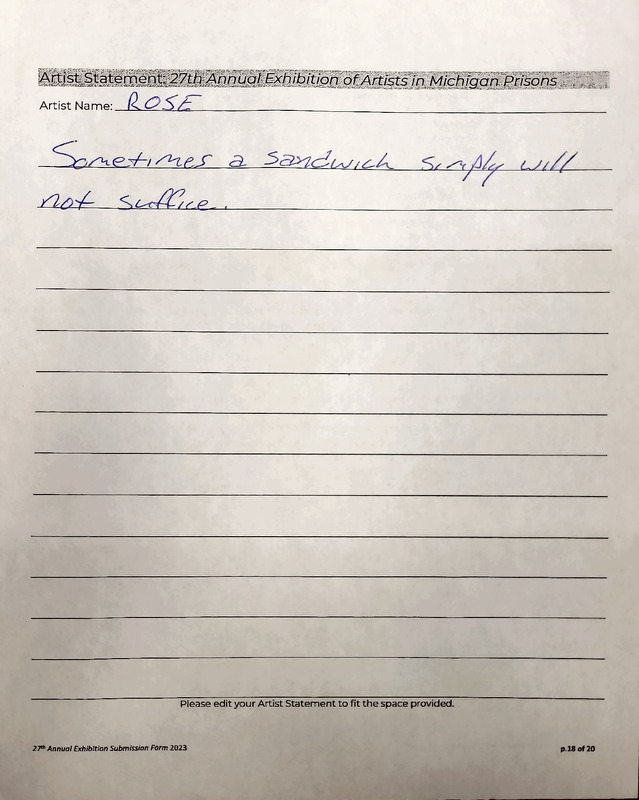 Artist Statement: 27th Annual Exhibition of Artists in Michigan Prisons
Artist Name: ROSE
Sometimes a sandwich simply will
not suffice.
Please edit your Artist Statement to fit the space provided.
27th Annual Exhibition Submission Form 2023
p.18 of 20